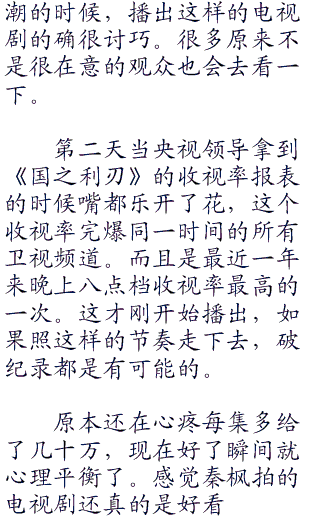 潮的时候，播出这样的电视
剧的确很讨巧。很多原来不
是很在意的观众也会去看一
下。
第二天当央视领导拿到
《国之利刃》的收视率报表
的时候嘴都乐开了花，这个
收视率完爆同一时间的所有
卫视频道。而且是最近一年
来晚上八点档收视率最高的
一次。这才刚开始播出，如
果照这样的节奏走下去，破
纪录都是有可能的。
原本还在心疼每集多给
了几十万，现在好了瞬间就
心理平衡了。感觉秦枫拍的
电视剧还真的是好看